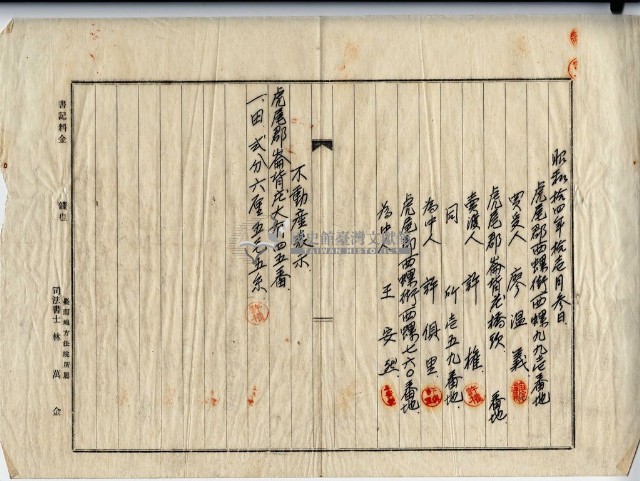 昭和拾四年拾壱月参日
虎尾郡西螺街西螺九九壱番地
買受人 廖温義
虎尾郡崙背庄橋頭 番地
賣渡人 許權
同 所壱五九番地
為中人 許俱里
虎尾郡西螺街西螺七六〇番地
為中人 王安
不動産表示
虎尾郡崙背庄大 四五番
一、田 弍分六厘五毛五糸
書記料金 錢也
臺南地方法院所屬
司法書士 林萬金
國史館臺灣文獻館
TAIWAN HISTORICA